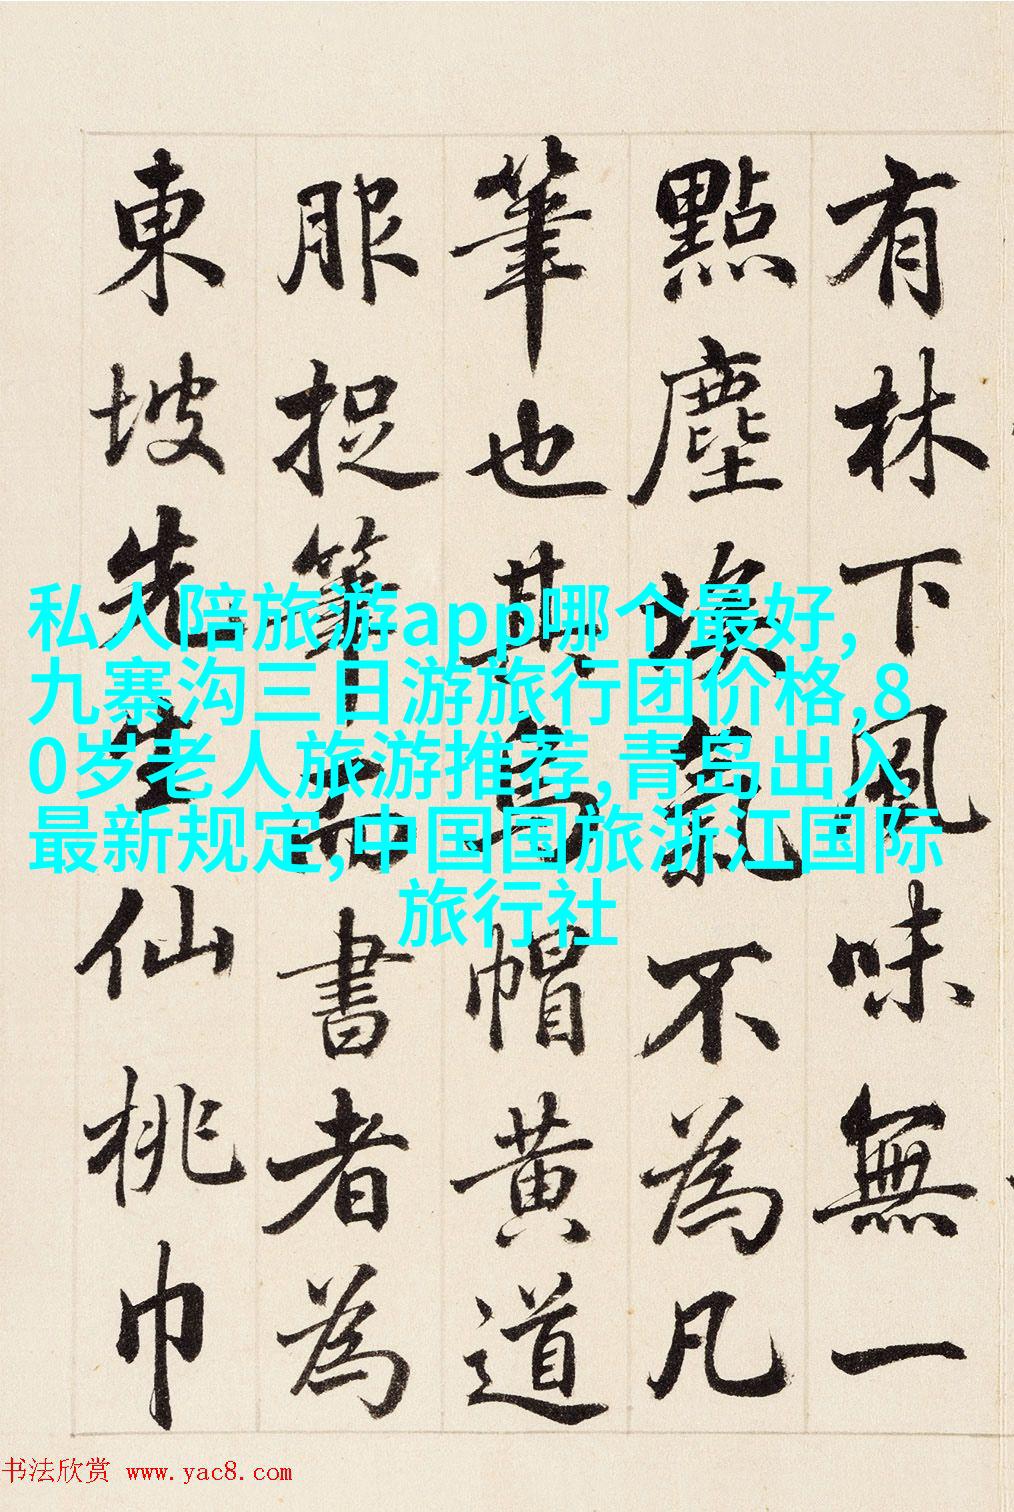 有林下風味無一
點塵埃氣不為凡
筆也其烏帽黃道
服捉筆而書者為
東坡先生仙桃巾
私人陪旅游app哪个最好,
九寨沟三日游旅行团价格,8
0岁老人旅游推荐,青岛出入
最新规定,中国国旅浙江国际
旅行社
书法欣赏 www.yac8.com